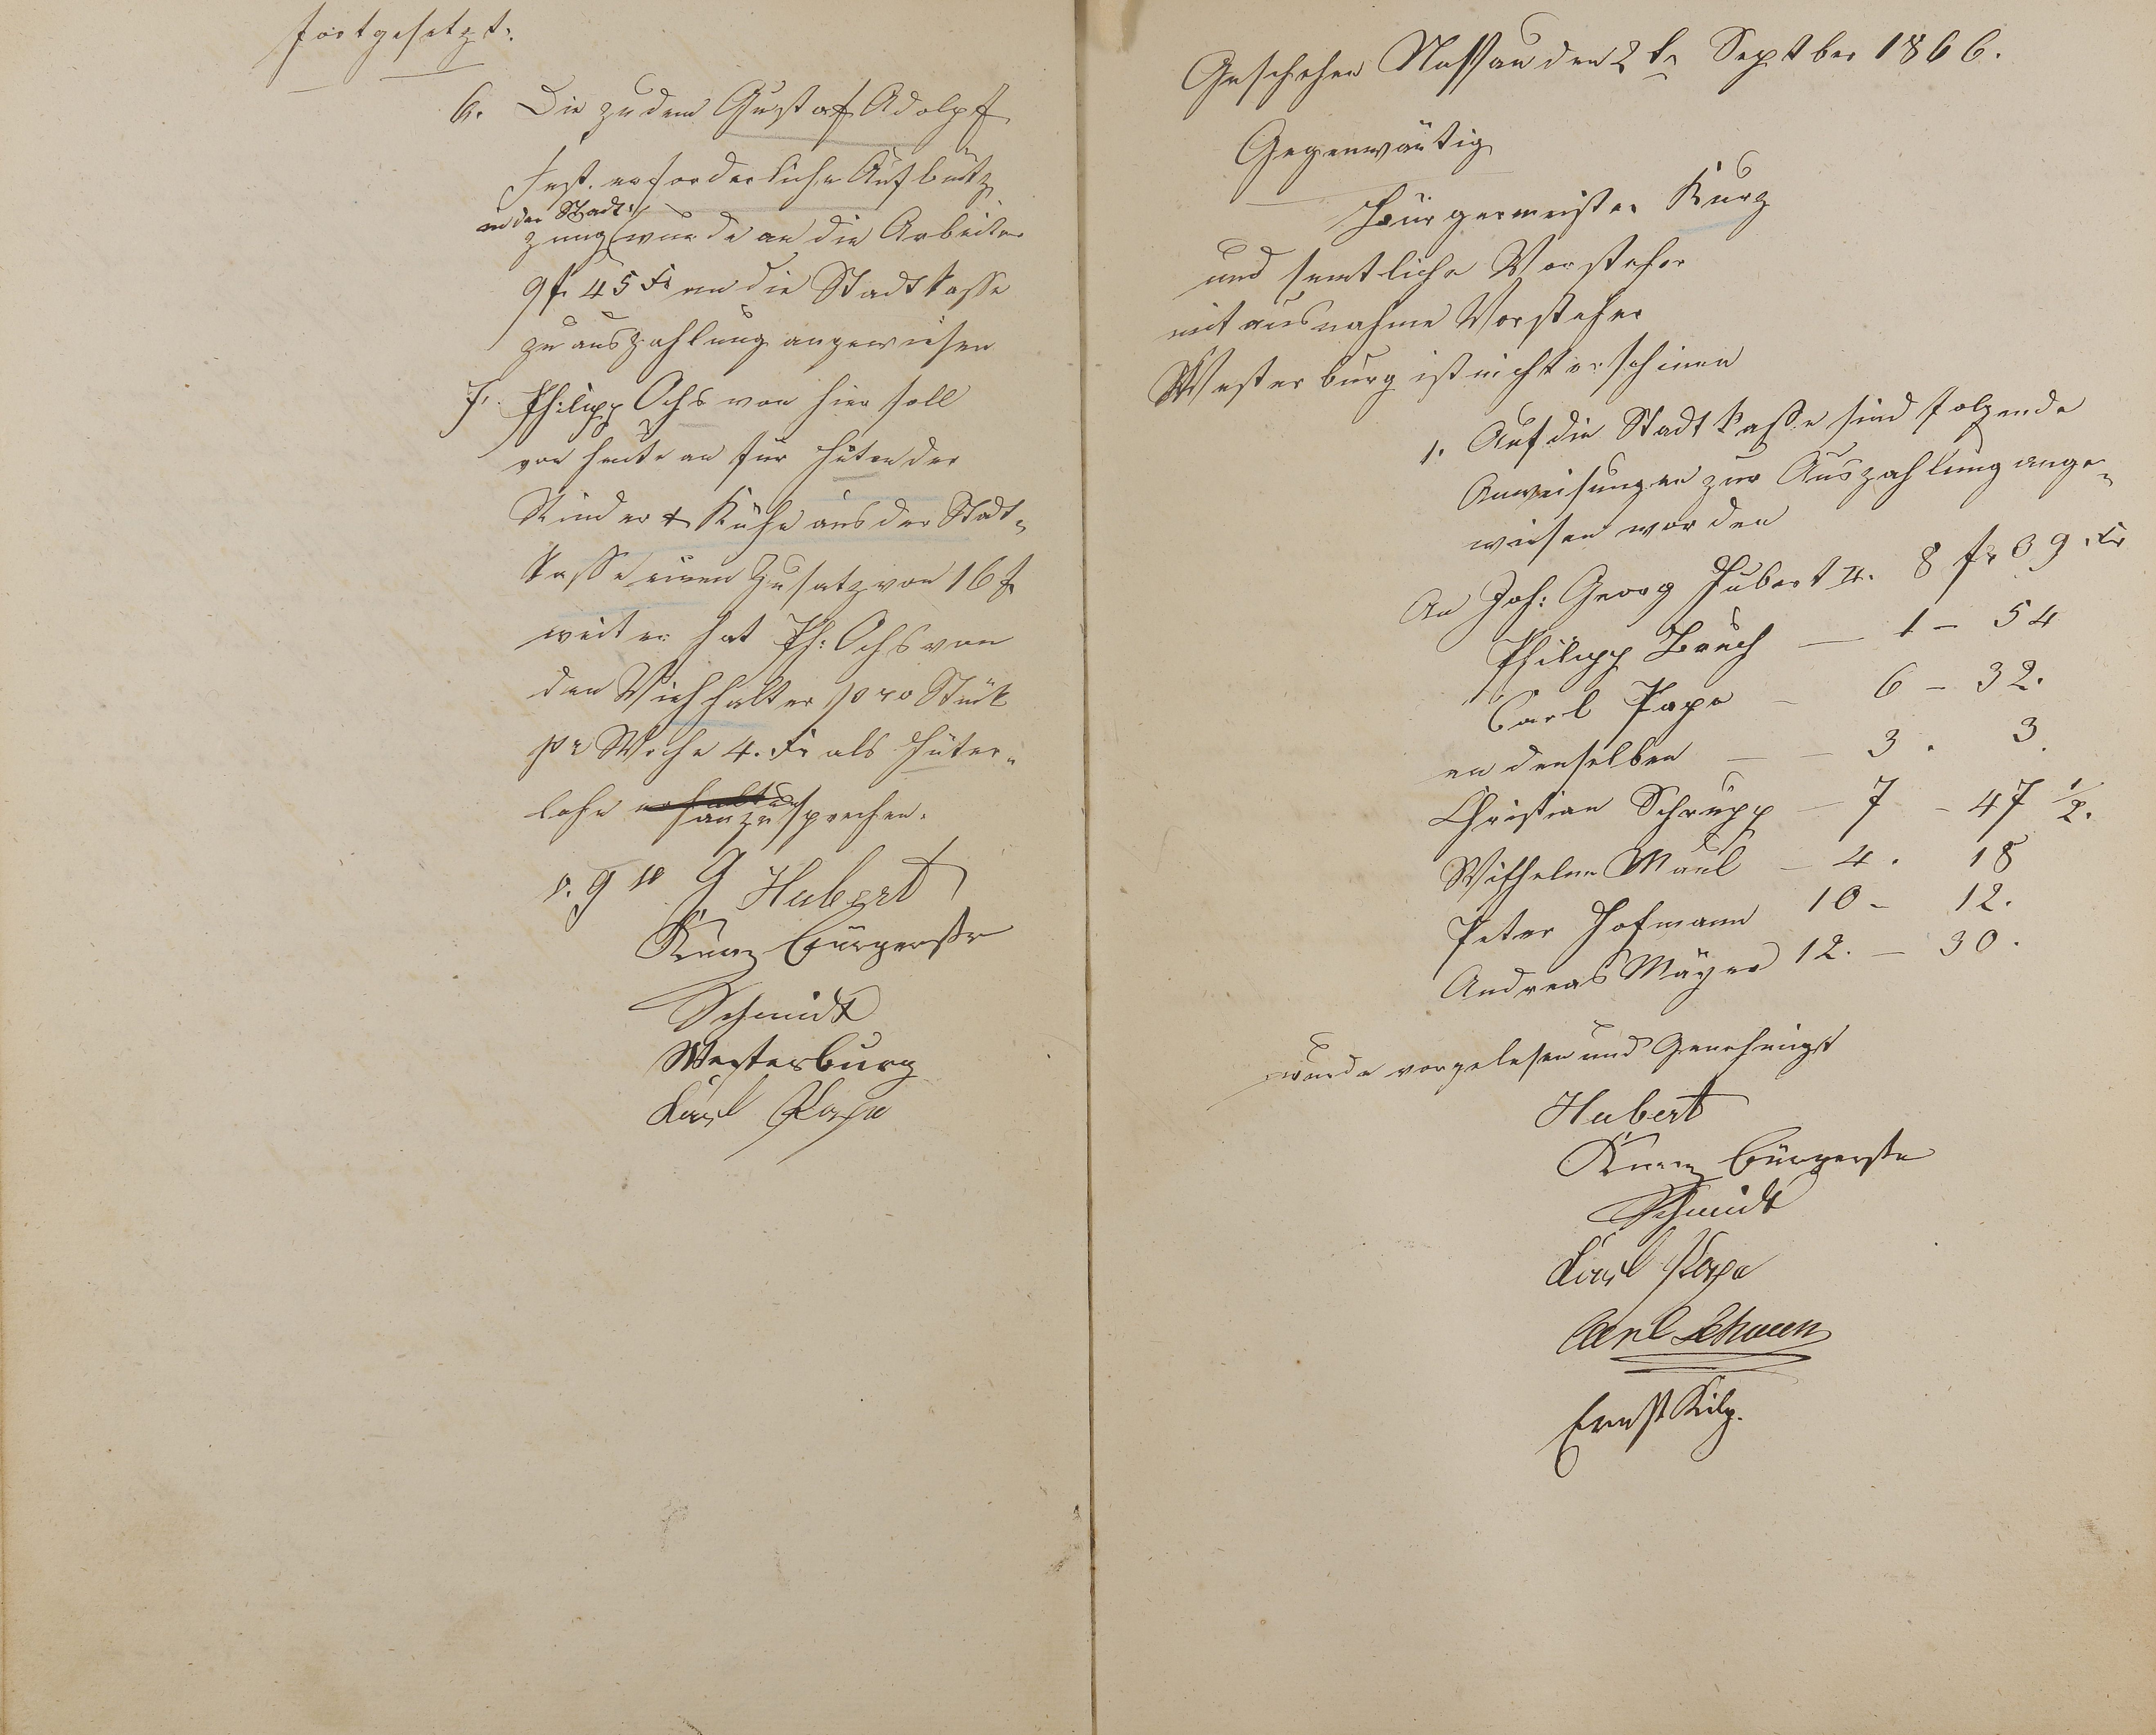 fortgesetzt:
6. Die zu dem Gustaf Adolpf
Fest. erforderliche Aufbutz
in der Stadt:
zung wurde an die Arbeiter
9 f 45 Kr an die Stadtkasse
zu auszahlung angewiesen
7. Philipp Ochs von hier soll
von heute an für Hüten der
Rinder & Kühe aus der Stadt-
kasse einen Zusatz von 16 f
weiter hat Ph: Ochs von
den Viehhalter pro Stück
pr Woche 4. Kr als Hüter-
lohn anzusprechen.
Hubert
Kurz Bürgerstr
Schmidt
Westerburg
Karl Pape
Geschehen Nassau den 2tn Septber 1866.
Gegenwärtig
Bürgermeister Kurz
und semtliche Vorsteher
mit ausnahme Vorsteher
Westerburg ist nicht erschinen
1. Auf die Stadtkasse sind folgende
Anweisungen zur Auszahlung ange-
wiesen worden
An Joh: Georg Hubert II. 8 fr 39 Kr
Philipp Bruch — 1 — 54
Carl Pape — 6 — 32.
an denselben — — 3 . 3.
Christian Schrupp — 7 — 47 1/2.
Wilhelm Maul — 4 . 18
Peter Hofmann 10 — 12.
Andreas Mäyer 12. — 30.
wurde vorgelesen und Genehmigt
Hubert
Kurz Bürgerstr
Schmidt
Karl Pape
Carl
Ernst Kilp.